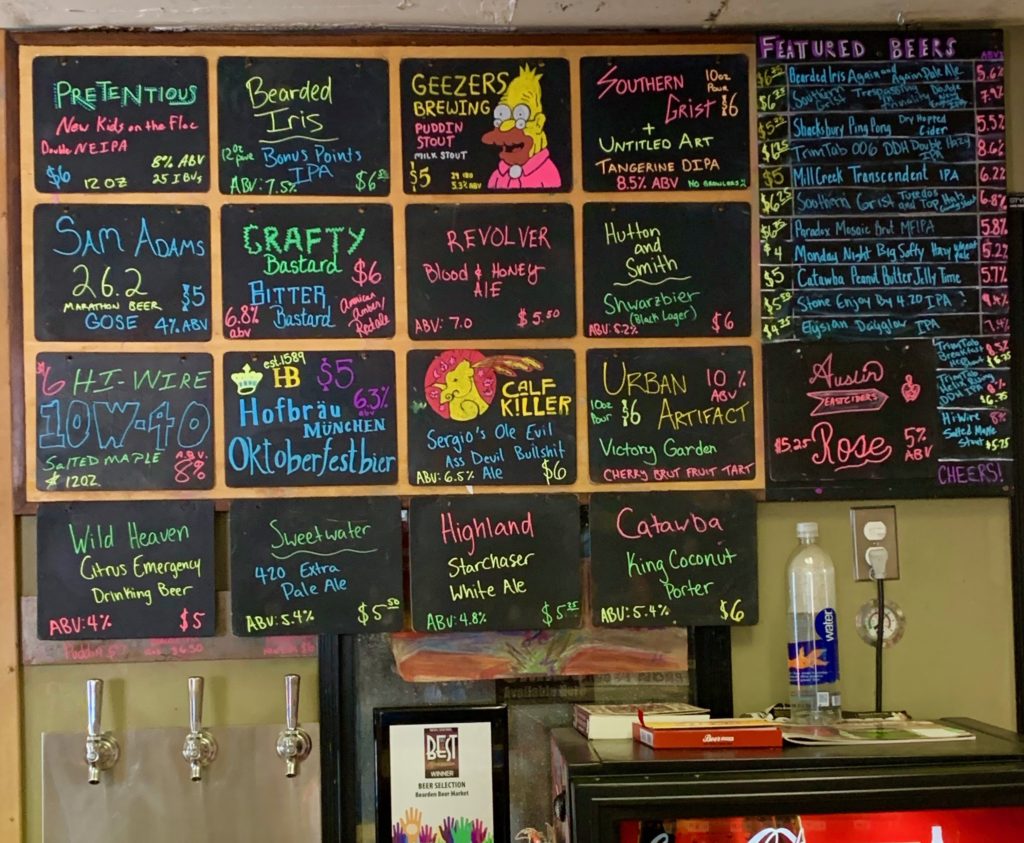 PRETENTIOUS
New Kids on the Floc
Double NEIPA
8% ABV
$6
12 OZ
25 IBUs
Bearded
Iris
12oz pour
Bonus Points
IPA
ABV: 7.5%
GEEZERS
BREWING
PUDDIN
STOUT
MILK STOUT
$5
SOUTHERN
10oz
Pour
GRIST
$6
+
UNTITLED ART
TANGERINE DIPA
8.5% ABV
NO GROWLERS
SAM ADAMS
26.2
MARATHON BEER
$5
GOSE
4% ABV
CRAFTY
Bastard
$6
BITTER
Bastard
6.8%
abv
American
Amber/
Red ale
REVOLVER
Blood & HONEY
AlE
ABV: 7.0
$5.50
Hutton
and
Smith
Shwarzbier
(Black Lager)
$6
$6
HI-WIRE
10W-40
SALTED MAPLE
12OZ
A.B.V.
8%
est. 1589
HB
$5
6.3%
abv
Hofbräu
MÜNCHEN
Oktoberfestbier
CALF
KILLER
Sergio's Ole Evil
Ass Devil Bullshit
Ale
ABV: 6.5%
$6
URBAN
10%
ABV
10oz
Pour
$6
ARTIFACT
Victory Garden
CHERRY BRUT FRUIT TART
Wild Heaven
Citrus Emergency
Drinking Beer
ABV: 4%
$5
Sweetwater
420 Extra
Pale Ale
ABV: 5.4%
$5.50
Highland
Starchaser
White Ale
ABV: 4.8%
$5.25
Catawba
King Coconut
Porter
ABV: 5.4%
$6
FEATURED BEERS
ABV
Bearded Iris Again and Again Pale Ale
Southern Grist Trespassing
Shacksbury Ping Pong Dry Hopped Cider
5.5%
TrimTab 006 DDH Double Hazy IPA
$5
Mill Creek Transcendent IPA
6.2%
$6.25
Southern Grist Tuxedos and Top Hats
6.8%
Paradox Mosaic Brut
5.8%
$4
Monday Night Big Softy Hazy Wheat Pale
5.2%
$5
Catawba Peanut Butter Jelly Time
5.7%
Stone Enjoy By 4.20 IPA
Elysian Dayglow IPA
7.4%
Austin
EASTCIDERS
Rose
$5.25
5%
ABV
TrimTab
Breakfast
TrimTab
DDH IPA
Hi-Wire
Salted Maple
Stout
$5.75
CHEERS!
water
BEST
WINNER
BEER SELECTION
Bearden Beer Market